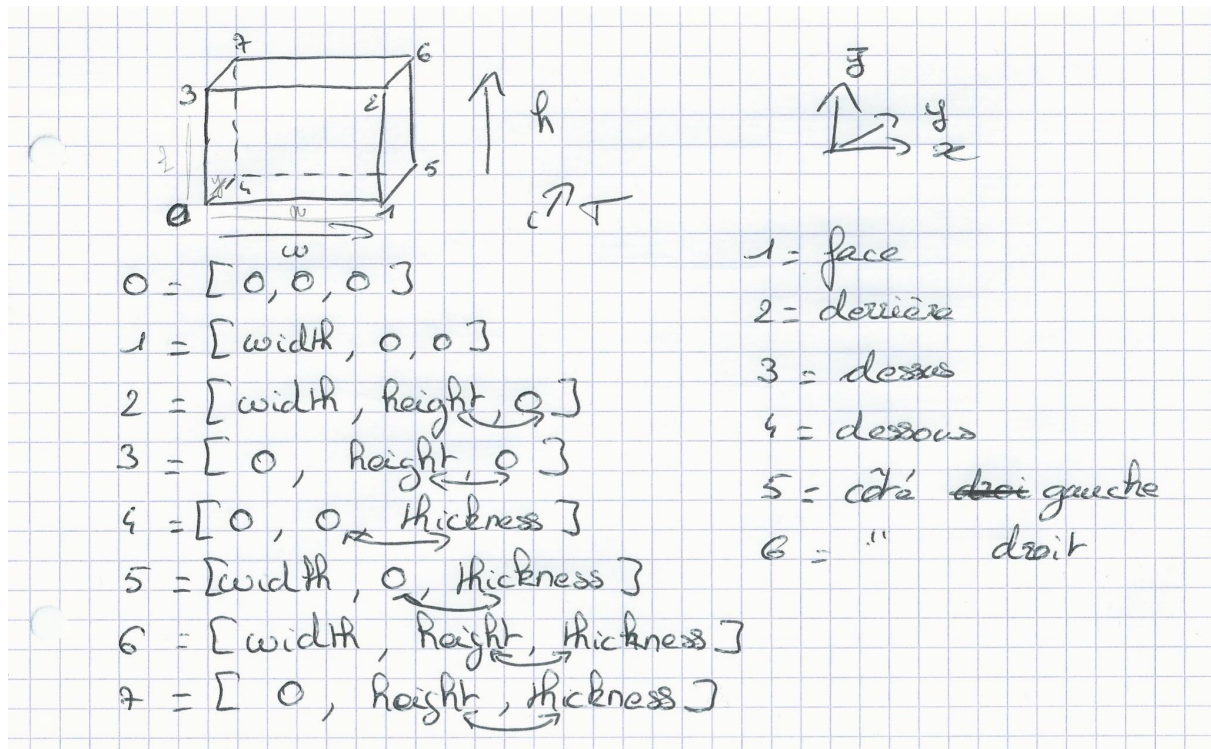 7
6
3
2
h
5
4
0
1
T
w
z
y
x
0 = [0, 0, 0]
1 = [width, 0, 0]
2 = [width, height, 0]
3 = [0, height, 0]
4 = [0, 0, thickness]
5 = [width, 0, thickness]
6 = [width, height, thickness]
7 = [0, height, thickness]
1 = face
2 = derrière
3 = dessus
4 = dessous
5 = côté droi gauche
6 = " droit